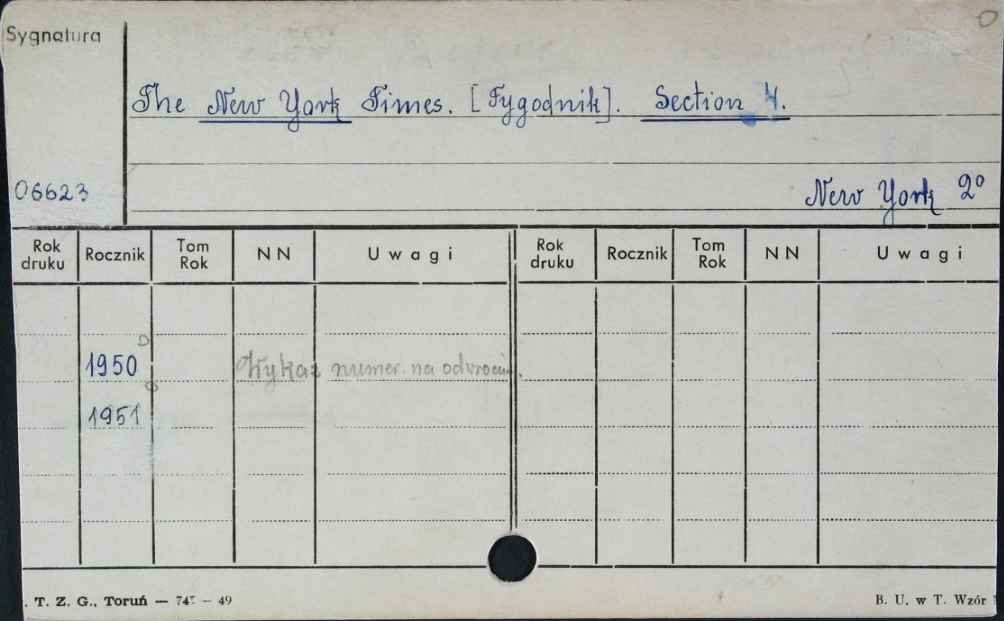 Sygnatura
The New York Times. [Tygodnik]. Section 4.
06623
New York 2º
Rok druku Rocznik Tom Rok NN Uwagi Rok druku Rocznik Tom Rok NN Uwagi
1950 Wykaz numer. na odwrocie.
1951
T. Z. G., Toruń — 49
B. U. w T. Wzór